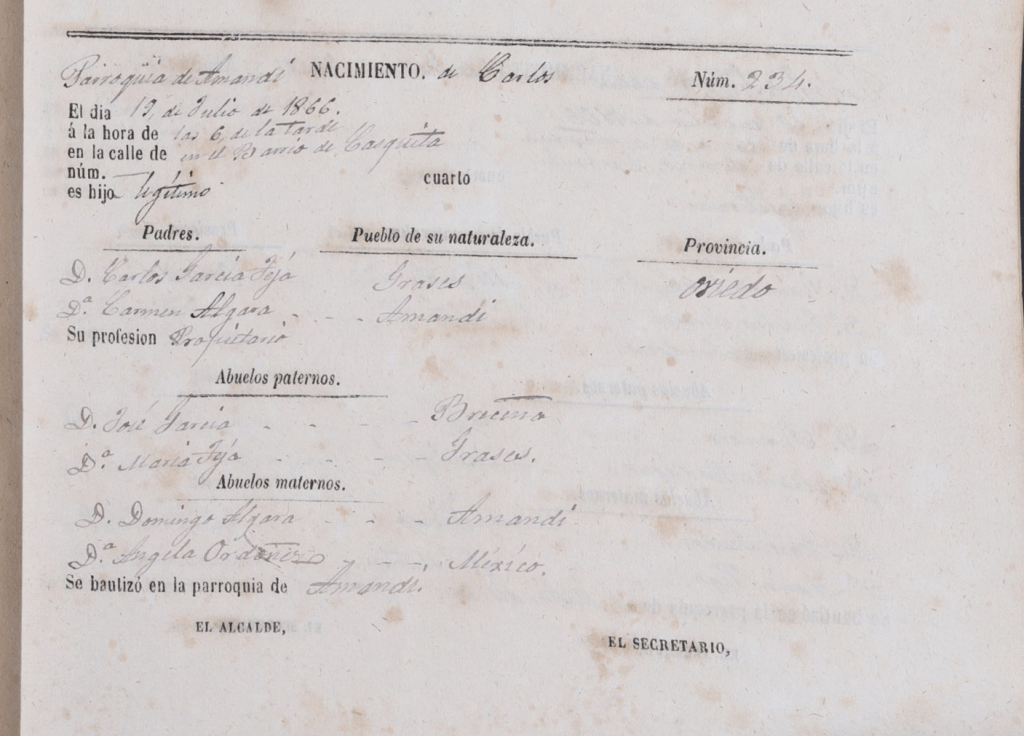 Parroquia de Amandi NACIMIENTO, de Carlos Núm. 234.
El dia 19, de Julio de 1866.
á la hora de las 6 de la tarde
en la calle de en el Barrio de Casquita
núm. cuarto
es hijo legítimo
Padres. Pueblo de su naturaleza. Provincia.
D. Carlos Garcia Fijó Grases Oviedo
D.ª Carmen Algara - - - Amandi
Su profesion Propietario
Abuelos paternos.
D. José Garcia - - - - Breceña
D.ª Maria Fijó - - - - Grases.
Abuelos maternos.
D. Domingo Algara - - - Amandi
D.ª Angela Ordoñez - - -, México.
Se bautizó en la parroquia de Amandi.
EL ALCALDE,
EL SECRETARIO,